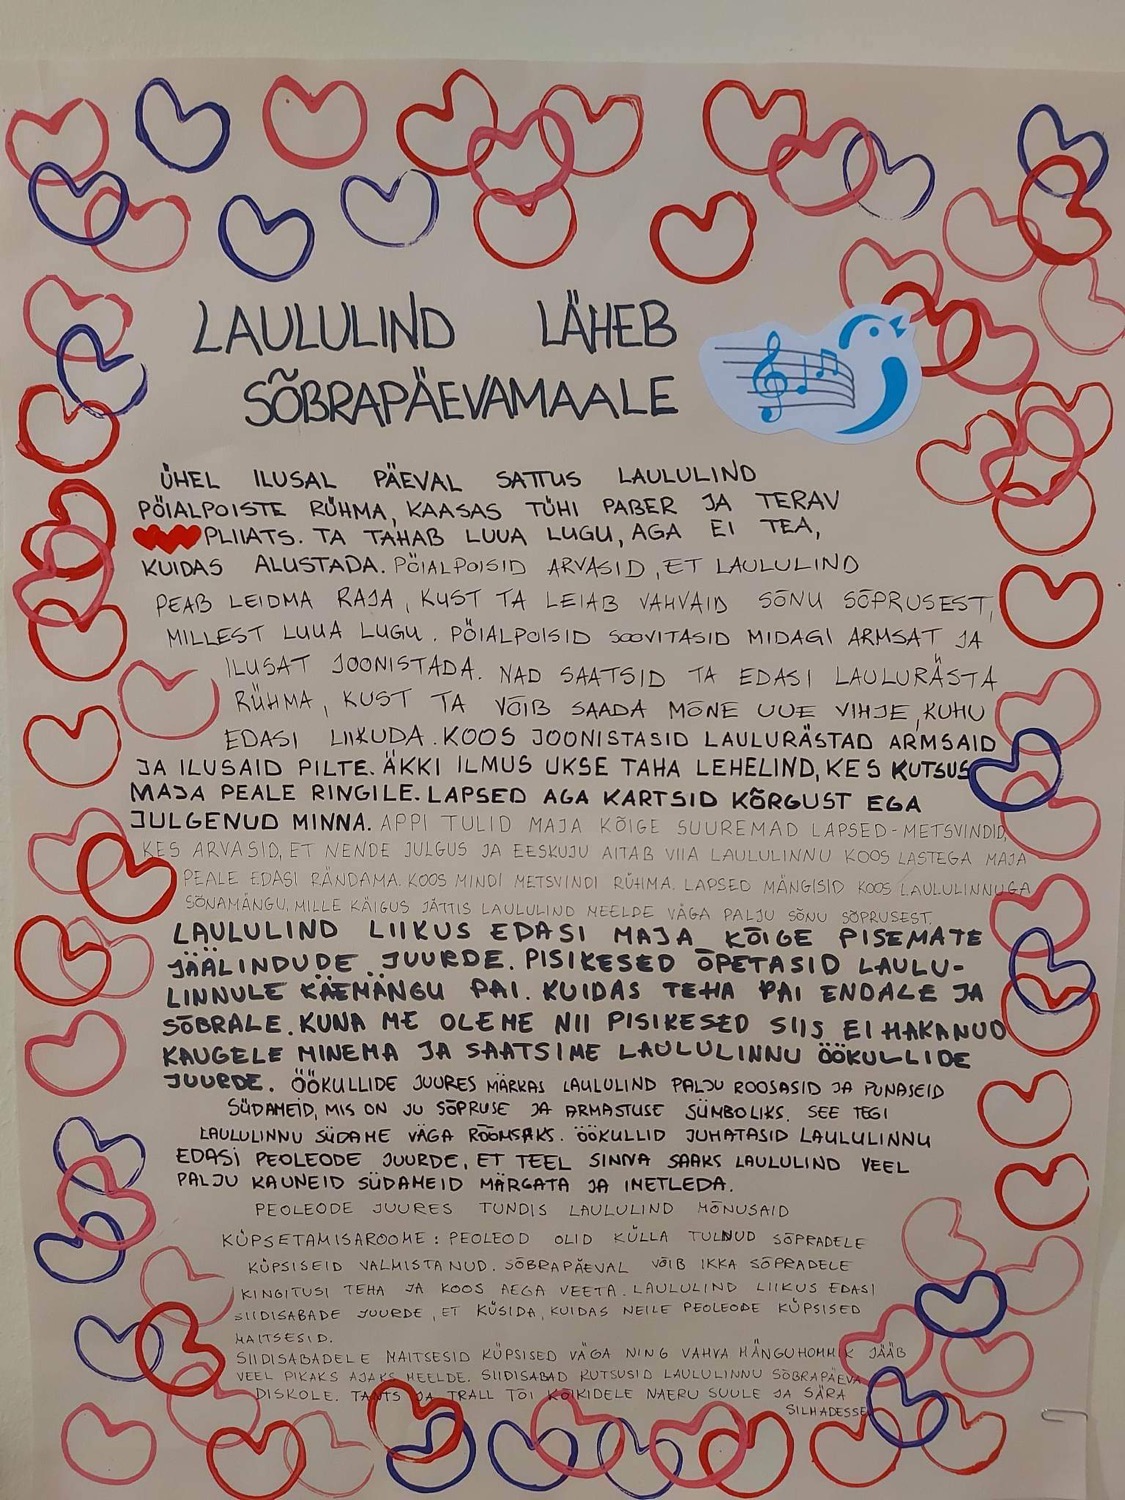 LAULULIND LÄHEB
SÕBRAPÄEVAMAALE
ÜHEL ILUSAL PÄEVAL SATTUS LAULULIND
PÖIALPOISTE RÜHMA, KAASAS TÜHI PABER JA TERAV
PLIIATS. TA TAHAB LUUA LUGU, AGA EI TEA,
KUIDAS ALUSTADA. PÖIALPOISID ARVASID, ET LAULULIND
PEAB LEIDMA RAJA, KUST TA LEIAB VAHVAID SÕNU SÕPRUSEST,
MILLEST LUUA LUGU. PÖIALPOISID SOOVITASID MIDAGI ARMSAT JA
ILUSAT JOONISTADA. NAD SAATSID TA EDASI LAULURÄSTA
RÜHMA, KUST TA VÕIB SAADA MÕNE UUE VIHJE, KUHU
EDASI LIIKUDA. KOOS JOONISTASID LAULURÄSTAD ARMSAID
JA ILUSAID PILTE. ÄKKI ILMUS UKSE TAHA LEHELIND, KES KUTSUS
MAJA PEALE RINGILE. LAPSED AGA KARTSID KÕRGUST EGA
JULGENUD MINNA. APPI TULID MAJA KÕIGE SUUREMAD LAPSED - METSVINDID,
KES ARVASID, ET NENDE JULGUS JA EESKUJU AITAB VIIA LAULULINNU KOOS LASTEGA MAJA
PEALE EDASI RÄNDAMA. KOOS MINDI METSVINDI RÜHMA. LAPSED MÄNGISID KOOS LAULULINNUGA
SÕNAMÄNGU, MILLE KÄIGUS JÄTTIS LAULULIND MEELDE VÄGA PALJU SÕNU SÕPRUSEST.
LAULULIND LIIKUS EDASI MAJA KÕIGE PISEMATE
JÄÄLINDUDE JUURDE. PISIKESED ÕPETASID LAULU-
LINNULE KÄEMÄNGU PAI. KUIDAS TEHA PAI ENDALE JA
SÕBRALE. KUNA ME OLEME NII PISIKESED SIIS EI HAKANUD
KAUGELE MINEMA JA SAATSIME LAULULINNU ÖÖKULLIDE
JUURDE. ÖÖKULLIDE JUURES MÄRKAS LAULULIND PALJU ROOSASID JA PUNASEID
SÜDAMEID, MIS ON JU SÕPRUSE JA ARMASTUSE SÜMBOLIKS. SEE TEGI
LAULULINNU SÜDAME VÄGA RÕÕMSAKS. ÖÖKULLID JUHATASID LAULULINNU
EDASI PEOLEODE JUURDE, ET TEEL SINNA SAAKS LAULULIND VEEL
PALJU KAUNEID SÜDAMEID MÄRGATA JA IMETLEDA.
PEOLEODE JUURES TUNDIS LAULULIND MÕNUSAID
KÜPSETAMISAROOME: PEOLEOD OLID KÜLLA TULNUD SÕPRADELE
KÜPSISEID VALMISTANUD. SÕBRAPÄEVAL VÕIB IKKA SÕPRADELE
KINGITUSI TEHA JA KOOS AEGA VEETA. LAULULIND LIIKUS EDASI
SIIDISABADE JUURDE, ET KÜSIDA, KUIDAS NEILE PEOLEODE KÜPSISED
MAITSESID.
SIIDISABADELE MAITSESID KÜPSISED VÄGA NING VAHVA MÄNGUHOMMIK JÄÄB
VEEL PIKAKS AJAKS MEELDE. SIIDISABAD KUTSUSID LAULULINNU SÕBRAPÄEVA
DISKOLE. TANTS JA TRALL TÕI KÕIKIDELE NAERU SUULE JA SÄRA
SILMADESSE